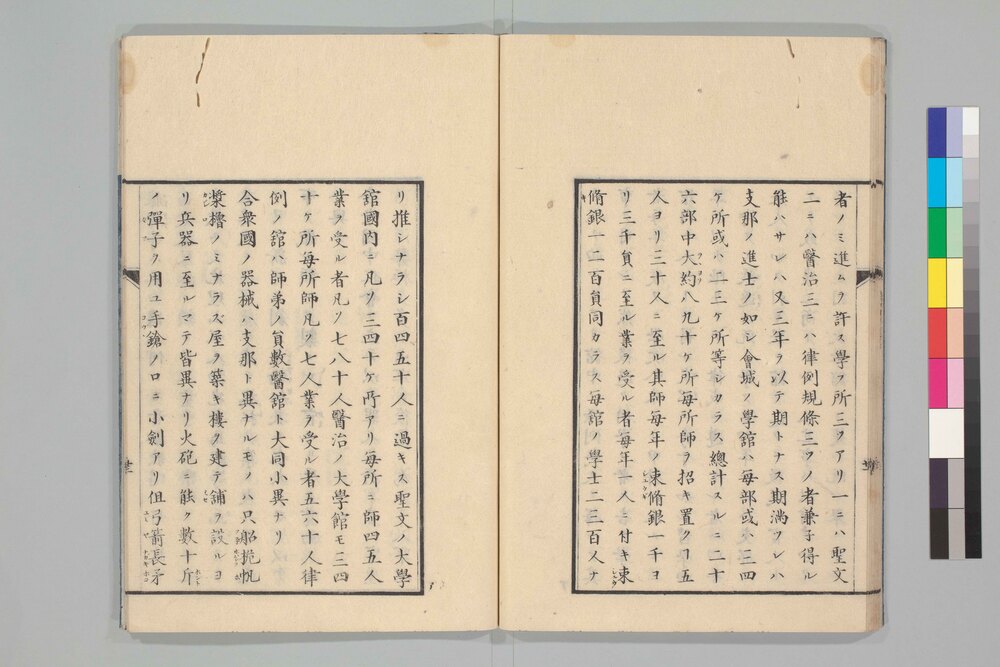 者ノミ進ムヲ許ス學フ所三ツアリ一ニハ聖文
二ニハ醫治三ニハ律例規條三ツノ者兼子得ル
能ハサレハ又三年ヲ以テ期トナス期満ツレハ
支那ノ進士ノ如シ會城ノ學館ハ毎部或ハ三四
ケ所或ハ二三ケ所等シカラス總計スルニ二十
六部中大約八九十ケ所毎所師ヲ招キ置クヿ五
人ヨリ三十人ニ至ル其師毎年ノ束脩銀一千ヨ
リ三千員ニ至ル業ヲ受ル者毎年一人ニ付キ束
脩銀一二百員同カラス毎館ノ學士二三百人ナ
リ推シナラシ百四五十人ニ過キス聖文ノ大學
館國内ニ凡ソ三四十ケ所アリ毎所ニ師四五人
業ヲ受ル者凡ソ七八十人醫治ノ大學館モ三四
十ケ所毎所師凡ソ七人業ヲ受ル者五六十人律
例ノ館ハ師弟ノ員數醫館ト大同小異ナリ
合衆國ノ器械ハ支那ト異ナルモノハ只船桅帆
槳櫓ノミナラズ屋ヲ築キ樓ヲ建テ舗ヲ設ルヨ
リ兵器ニ至ルマテ皆異ナリ火砲ニ能ク數十斤
ノ彈子ヲ用ユ手鎗ノロニ小劍アリ但弓箭長矛